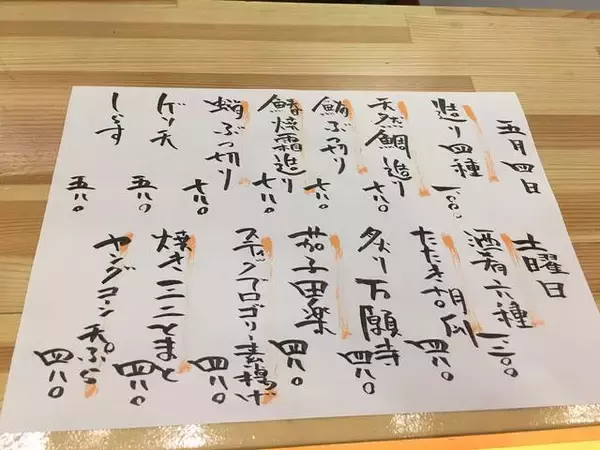 五月四日
土曜日
造り四種
天然鯛造り 七八〇
鮪ぶつ切り 七八〇
鰆焼霜造り 七八〇
蛸ぶつ切り 七八〇
ゲソ天 五八〇
しらす 五八〇
酒肴六種
たたき胡瓜 四八〇
炙り万願寺 四八〇
茄子田楽 四八〇
スティックブロッコリー素揚げ 四八〇
焼きミニとまと 四八〇
ヤングコーン天ぷら 四八〇